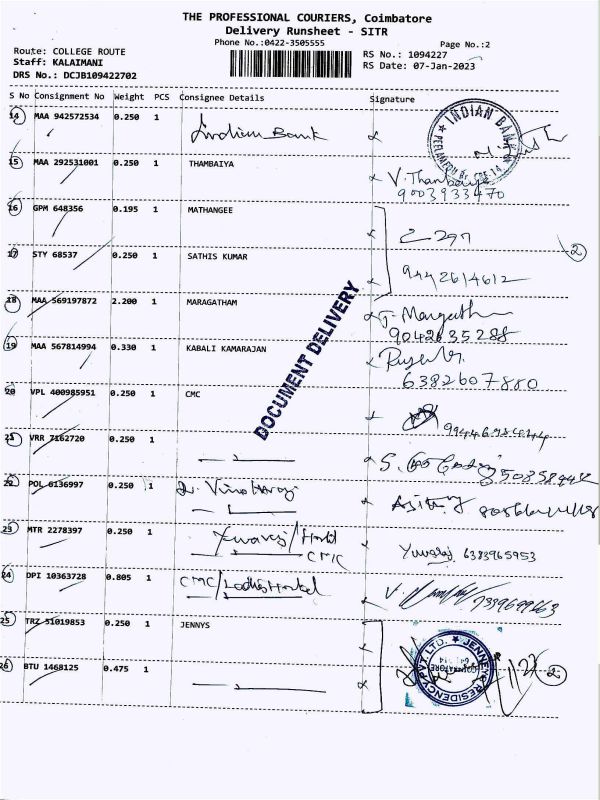 THE PROFESSIONAL COURIERS, Coimbatore
Delivery Runsheet - SITR
Phone No.:0422-3505555
Page No.:2
Route: COLLEGE ROUTE
RS No.: 1094227
Staff: KALAIMANI
RS Date: 07-Jan-2023
DRS No.: DCJB109422702
S No Consignment No Weight PCS Consignee Details Signature
14 MAA 942572534 0.250 1 Indian Bank
INDIAN BANK
15 MAA 292531001 0.250 1 THAMBAIYA
V. Thambaiya
9003933470
16 GPM 648356 0.195 1 MATHANGEE
2
17 STY 68537 0.250 1 SATHIS KUMAR
9442614612
18 MAA 569197872 2.200 1 MARAGATHAM
9042635288
19 MAA 567814994 0.330 1 KABALI KAMARAJAN
6382607880
DOCUMENT DELIVERY
20 VPL 400985951 0.250 1 CMC
21 VRR 7162720 0.250 1
22 POL 6136997 0.250 1
23 MTR 2278397 0.250 1 Yuvaraj / Hostel
CMC
Yuvaraj 6383965953
24 DPI 10363728 0.805 1 CMC/Ladies Hostel
25 TRZ 51019853 0.250 1 JENNYS
JENNEYS RESIDENCY PVT LTD.
COIMBATORE
26 BTU 1468125 0.475 1
2